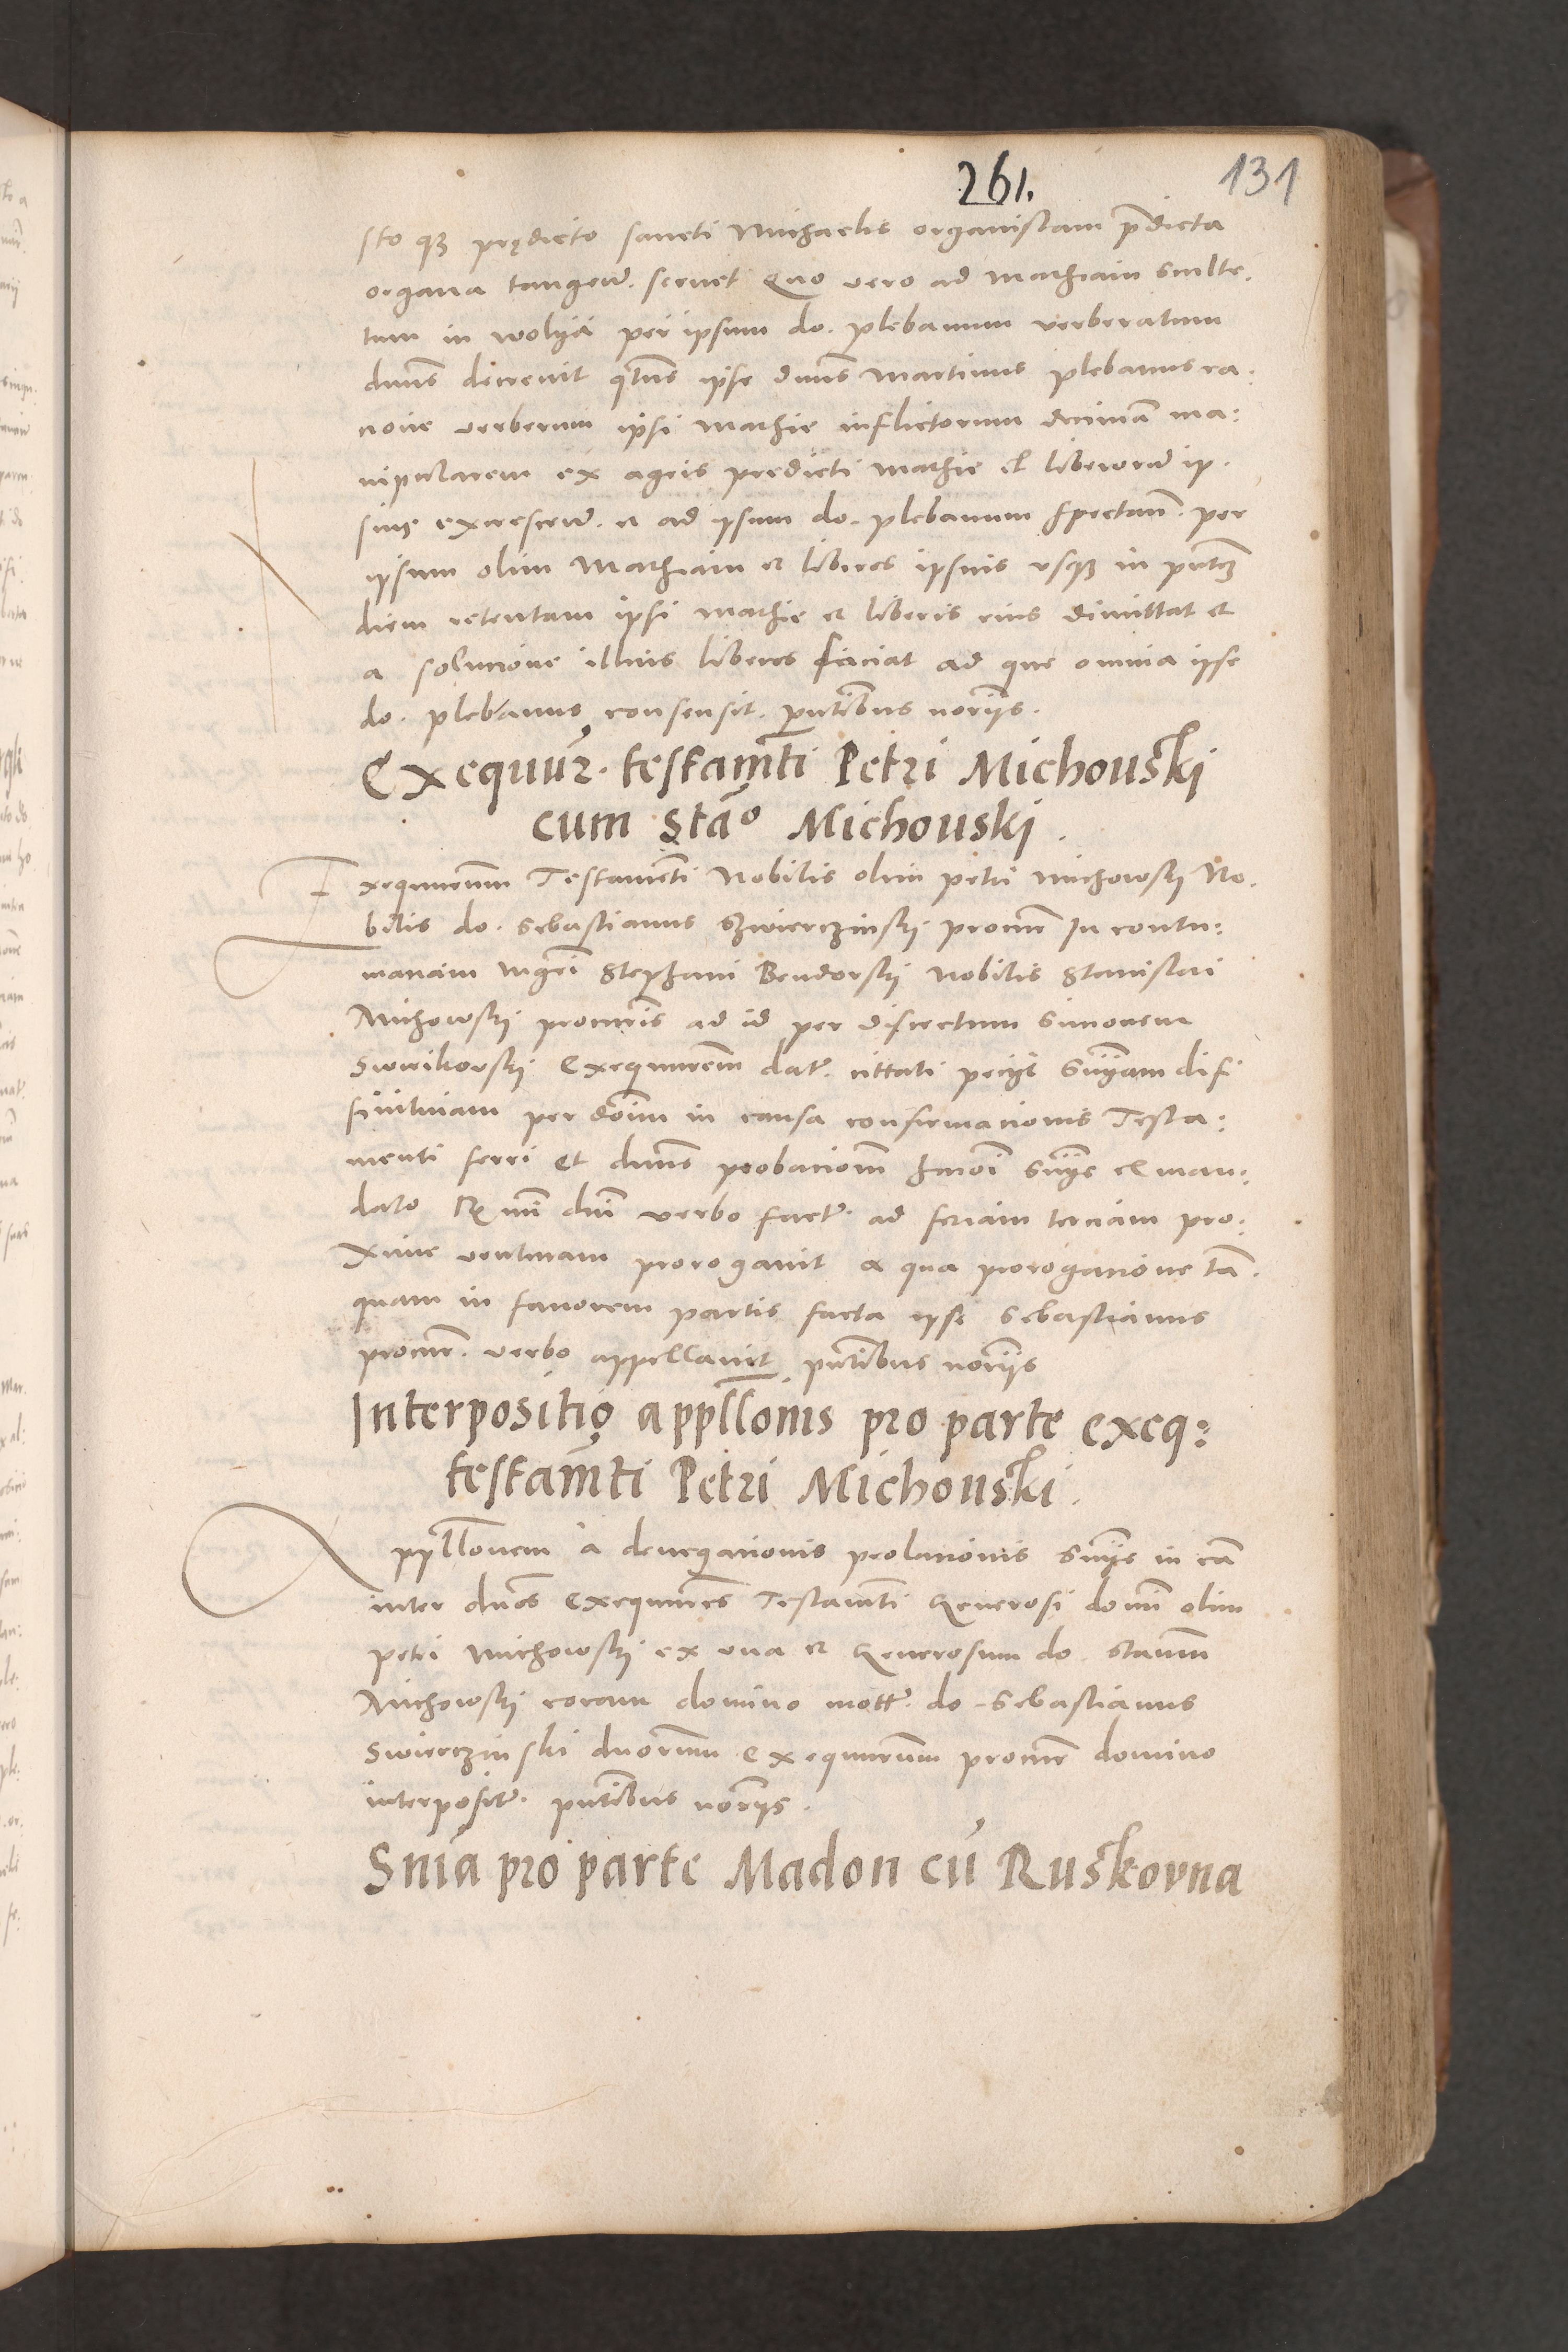 261.
131
sto q3 prędicto sancti Michaelis organistam p̄dicta
organa tangen̄. servet Quo vero ad Mathiam Sculte.
tum in wolya per ipsum do. plebanum verberatum
dn̄us decrevit q̄tn̄s ipse dn̄us Martinus plebanus ra:
cione verberum ipsi Mathie inflictorum decimā ma:
nipularem ex agris predicti Mathie et liberorū ip.
sius excrescen̄. et ad ipsum do. plebanum spectan̄. per
ipsum olim Mathiam et liberos ipsius usq3 in pn̄tē
diem retentam ipsi Mathie et liberis eius dimittat et
a solucione illius liberos faciat ad que omnia ipse
do. plebanus consensit. pn̄tibus notr̄iis.
Exequut̄r. testam̄ti Petri Michouski
cum Sta̅o Michouski.
Exequutorum Testamēti Nobilis olim Petri Michowskj No.
bilis do. Sebastianus Szwierczinskj procur̄ In contu:
maciam Mgr̄i Stephani Bendorskj Nobilis Stanislai
Michowskj procur̄is ad id per discretum Simonem
Swirikorskj Exequutorem dat̄. cittati petiit Sn̄iam dif
finitivam per dn̄um in causa confirmacionis Testa:
menti ferri Et dn̄us probacionem hm̄oi Sn̄iȩ ex man:
dato Rm̄i dn̄i verbo fact̄. ad feriam terciam pro:
xime venturam prorogavit a qua prorogacione tā.
quam in favorem partis facta ipse Sebastianus
procur̄. verbo appellavit pn̄tibus notr̄iis
Interpositio app̄llonis pro parte exeq:
testam̄ti Petri Michouski.
App̄llonem a denegacionis prolacionis Sn̄iȩ in cā
inter dn̄os Exequutores Testam̄ti Generosi domi olim
Petri Michowskj ex una et Generosum do. Stan̄um
Michowskj coram domino mott̄. do. Sebastianus
Swierczinski dn̄orum Exequutorum procur̄ domino
interposit̄. pn̄tibus notr̄iis.
Snīa pro parte Madon cū Ruskovna